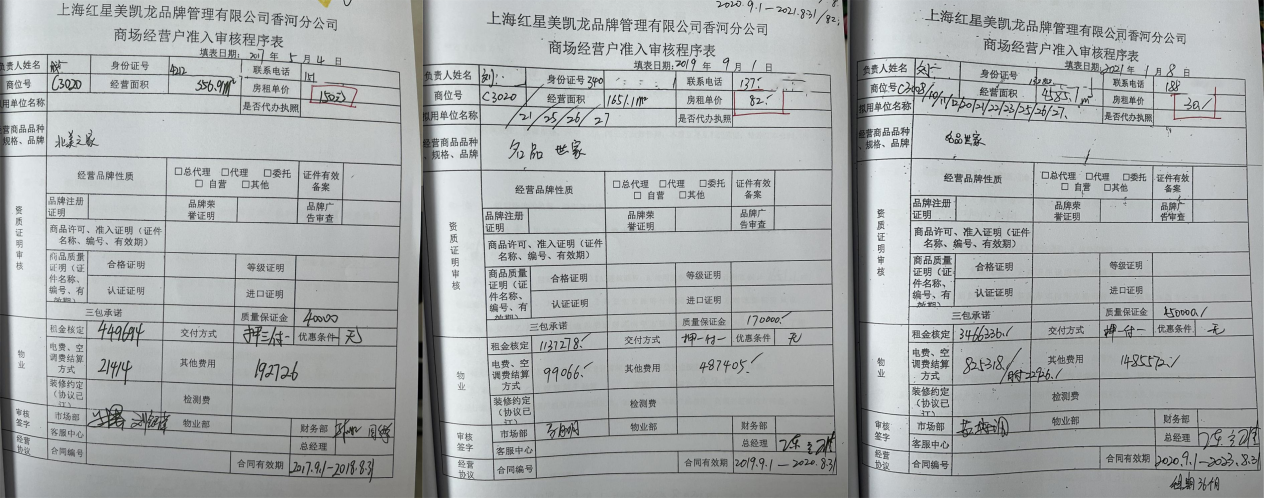 上海红星美凯龙品牌管理有限公司香河分公司
商场经营户准入审核程序表
填表日期: 2017 年 5 月 4 日
负责人姓名 身份证号 联系电话
商位号 C3020 经营面积 556.9m² 房租单价 150元
拟用单位名称 是否代办执照
经营商品品种、规格、品牌 北美之家
资质证明审核
经营品牌性质 □总代理 □代理 □委托 □ 自营 □其他 证件有效备案
品牌注册证明 品牌荣誉证明 品牌广告审查
商品许可、准入证明（证件名称、编号、有效期）
商品质量证明（证件名称、编号、有效期） 合格证明 等级证明
认证证明 进口证明
三包承诺 质量保证金 40000
物业
租金核定 449694 交付方式 押三付一 优惠条件 无
电费、空调费结算方式 21414 其他费用 192726
装修约定（协议已 检测费
审核签字 市场部 物业部 财务部
客服中心 总经理
经营协议 合同编号 合同有效期 2017.9.1-2018.8.31
2020.9.1-2021.8.31/82
上海红星美凯龙品牌管理有限公司香河分公司
商场经营户准入审核程序表
填表日期: 2019 年 9 月 1 日
负责人姓名 刘 身份证号 340 联系电话 137
商位号 C3020 经营面积 1651.1m² 房租单价 82
拟用单位名称 /21/25/26/27 是否代办执照
经营商品品种、规格、品牌 名品世家
资质证明审核
经营品牌性质 □总代理 □代理 □委托 □ 自营 □其他 证件有效备案
品牌注册证明 品牌荣誉证明 品牌广告审查
商品许可、准入证明（证件名称、编号、有效期）
商品质量证明（证件名称、编号、有效期） 合格证明 等级证明
认证证明 进口证明
三包承诺 质量保证金 170000
物业
租金核定 1137278 交付方式 押一付一 优惠条件 无
电费、空调费结算方式 99066 其他费用 487405
装修约定（协议已 检测费
审核签字 市场部 物业部 财务部
客服中心 总经理
经营协议 合同编号 合同有效期 2019.9.1-2020.8.31
上海红星美凯龙品牌管理有限公司香河分公司
商场经营户准入审核程序表
填表日期: 2021 年 1 月 8 日
负责人姓名 刘 身份证号 联系电话 188
商位号 经营面积 4585.1m² 房租单价 30
拟用单位名称 /20/21/22/23/25/26/27 是否代办执照
经营商品品种、规格、品牌 名品世家
资质证明审核
经营品牌性质 □总代理 □代理 □委托 □ 自营 □其他 证件有效备案
品牌注册证明 品牌荣誉证明 品牌广告审查
商品许可、准入证明（证件名称、编号、有效期）
商品质量证明（证件名称、编号、有效期） 合格证明 等级证明
认证证明 进口证明
三包承诺 质量保证金 450000
物业
租金核定 3466336 交付方式 押一付一 优惠条件 无
电费、空调费结算方式 825318/ 其他费用 1485572
装修约定（协议已 检测费
审核签字 市场部 物业部 财务部
客服中心 总经理
经营协议 合同编号 合同有效期 2020.9.1-2023.8.31
租期36个月